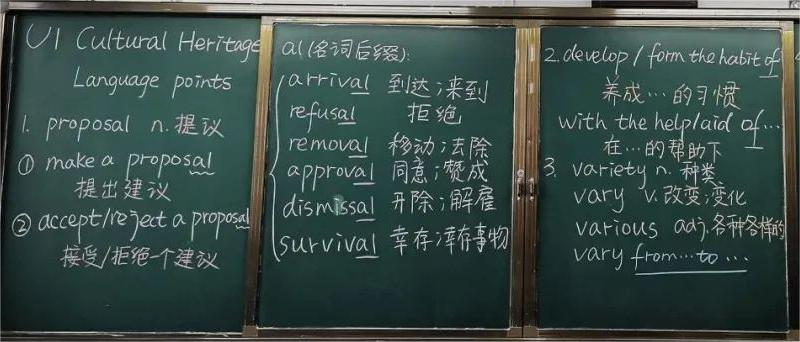 U1 Cultural Heritage
Language points
1. proposal n.提议
① make a proposal
提出建议
② accept/reject a proposal
接受/拒绝一个建议
al(名词后缀):
arrival 到达;来到
refusal 拒绝
removal 移动;去除
approval 同意;赞成
dismissal 开除;解雇
survival 幸存;幸存事物
2. develop / form the habit of
养成…的习惯
with the help/aid of…
在…的帮助下
3. variety n. 种类
vary v.改变;变化
various adj.各种各样的
vary from…to…